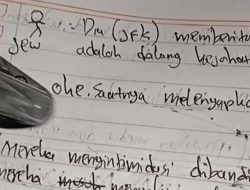 :- Dia (JFK) memberita
Jew adalah dalang kejahat
oke. saatnya melenyapka
Mereka mengintimidasi dibans
mereka